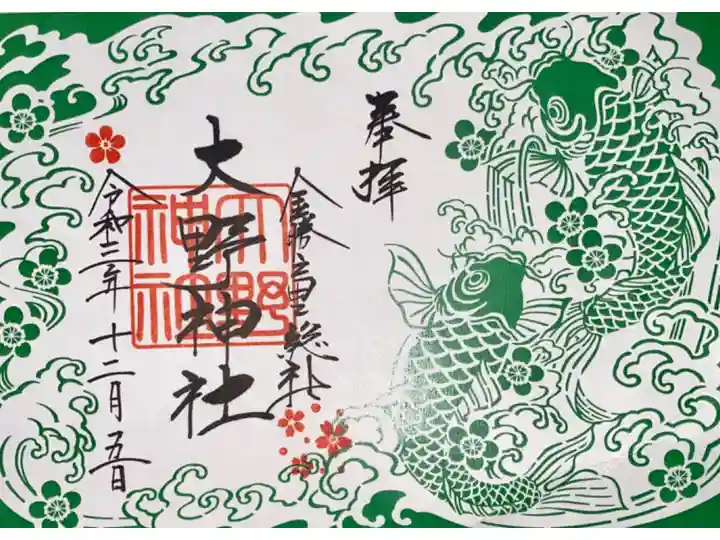 奉拝
総社
大野神社
大野神社
令和三年十二月五日